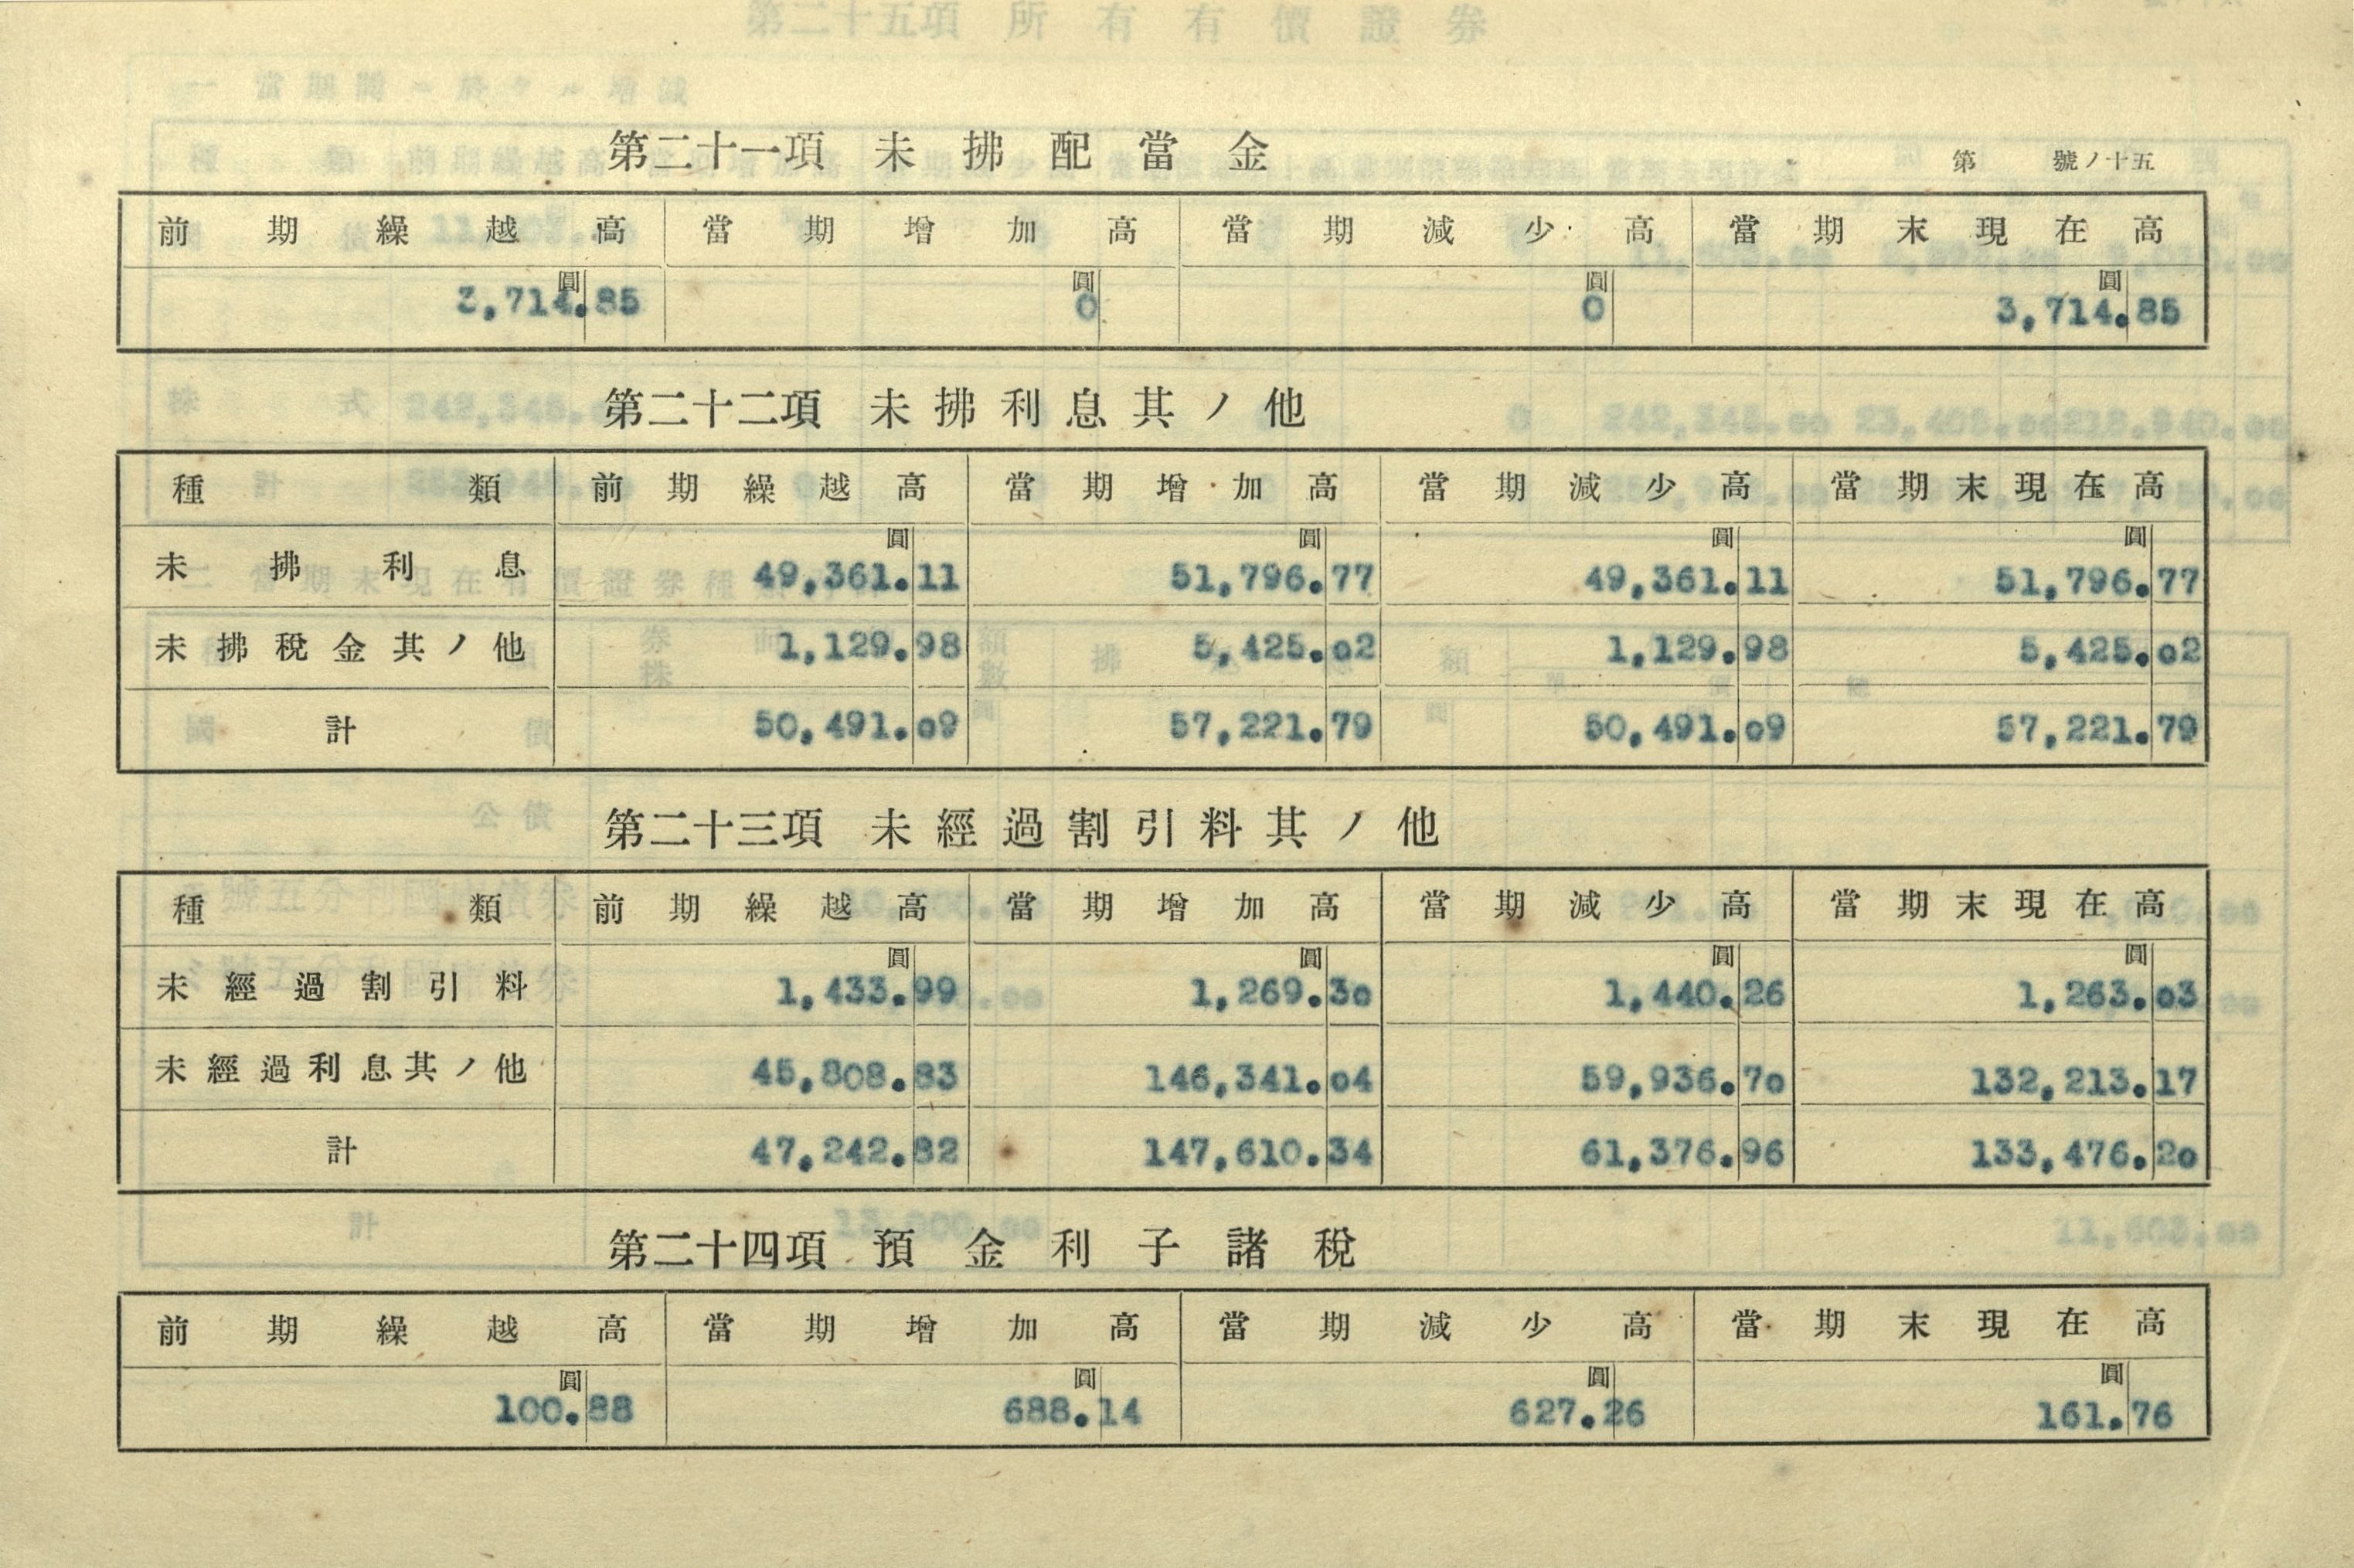 第二十一項 未拂配當金
第 號ノ十五
前期繰越高 當期增加高 當期減少高 當期末現在高
圓 圓 圓 圓
3,714.85 0 0 3,714.85
第二十二項 未拂利息其ノ他
種類 前期繰越高 當期增加高 當期減少高 當期末現在高
圓 圓 圓 圓
未拂利息 49,361.11 51,796.77 49,361.11 51,796.77
未拂稅金其ノ他 1,129.98 5,425.02 1,129.98 5,425.02
計 50,491.09 57,221.79 50,491.09 57,221.79
第二十三項 未經過割引料其ノ他
種類 前期繰越高 當期增加高 當期減少高 當期末現在高
圓 圓 圓 圓
未經過割引料 1,433.99 1,269.30 1,440.26 1,263.03
未經過利息其ノ他 45,808.83 146,341.04 59,936.70 132,213.17
計 47,242.82 147,610.34 61,376.96 133,476.20
第二十四項 預金利子諸稅
前期繰越高 當期增加高 當期減少高 當期末現在高
圓 圓 圓 圓
100.88 688.14 627.26 161.76